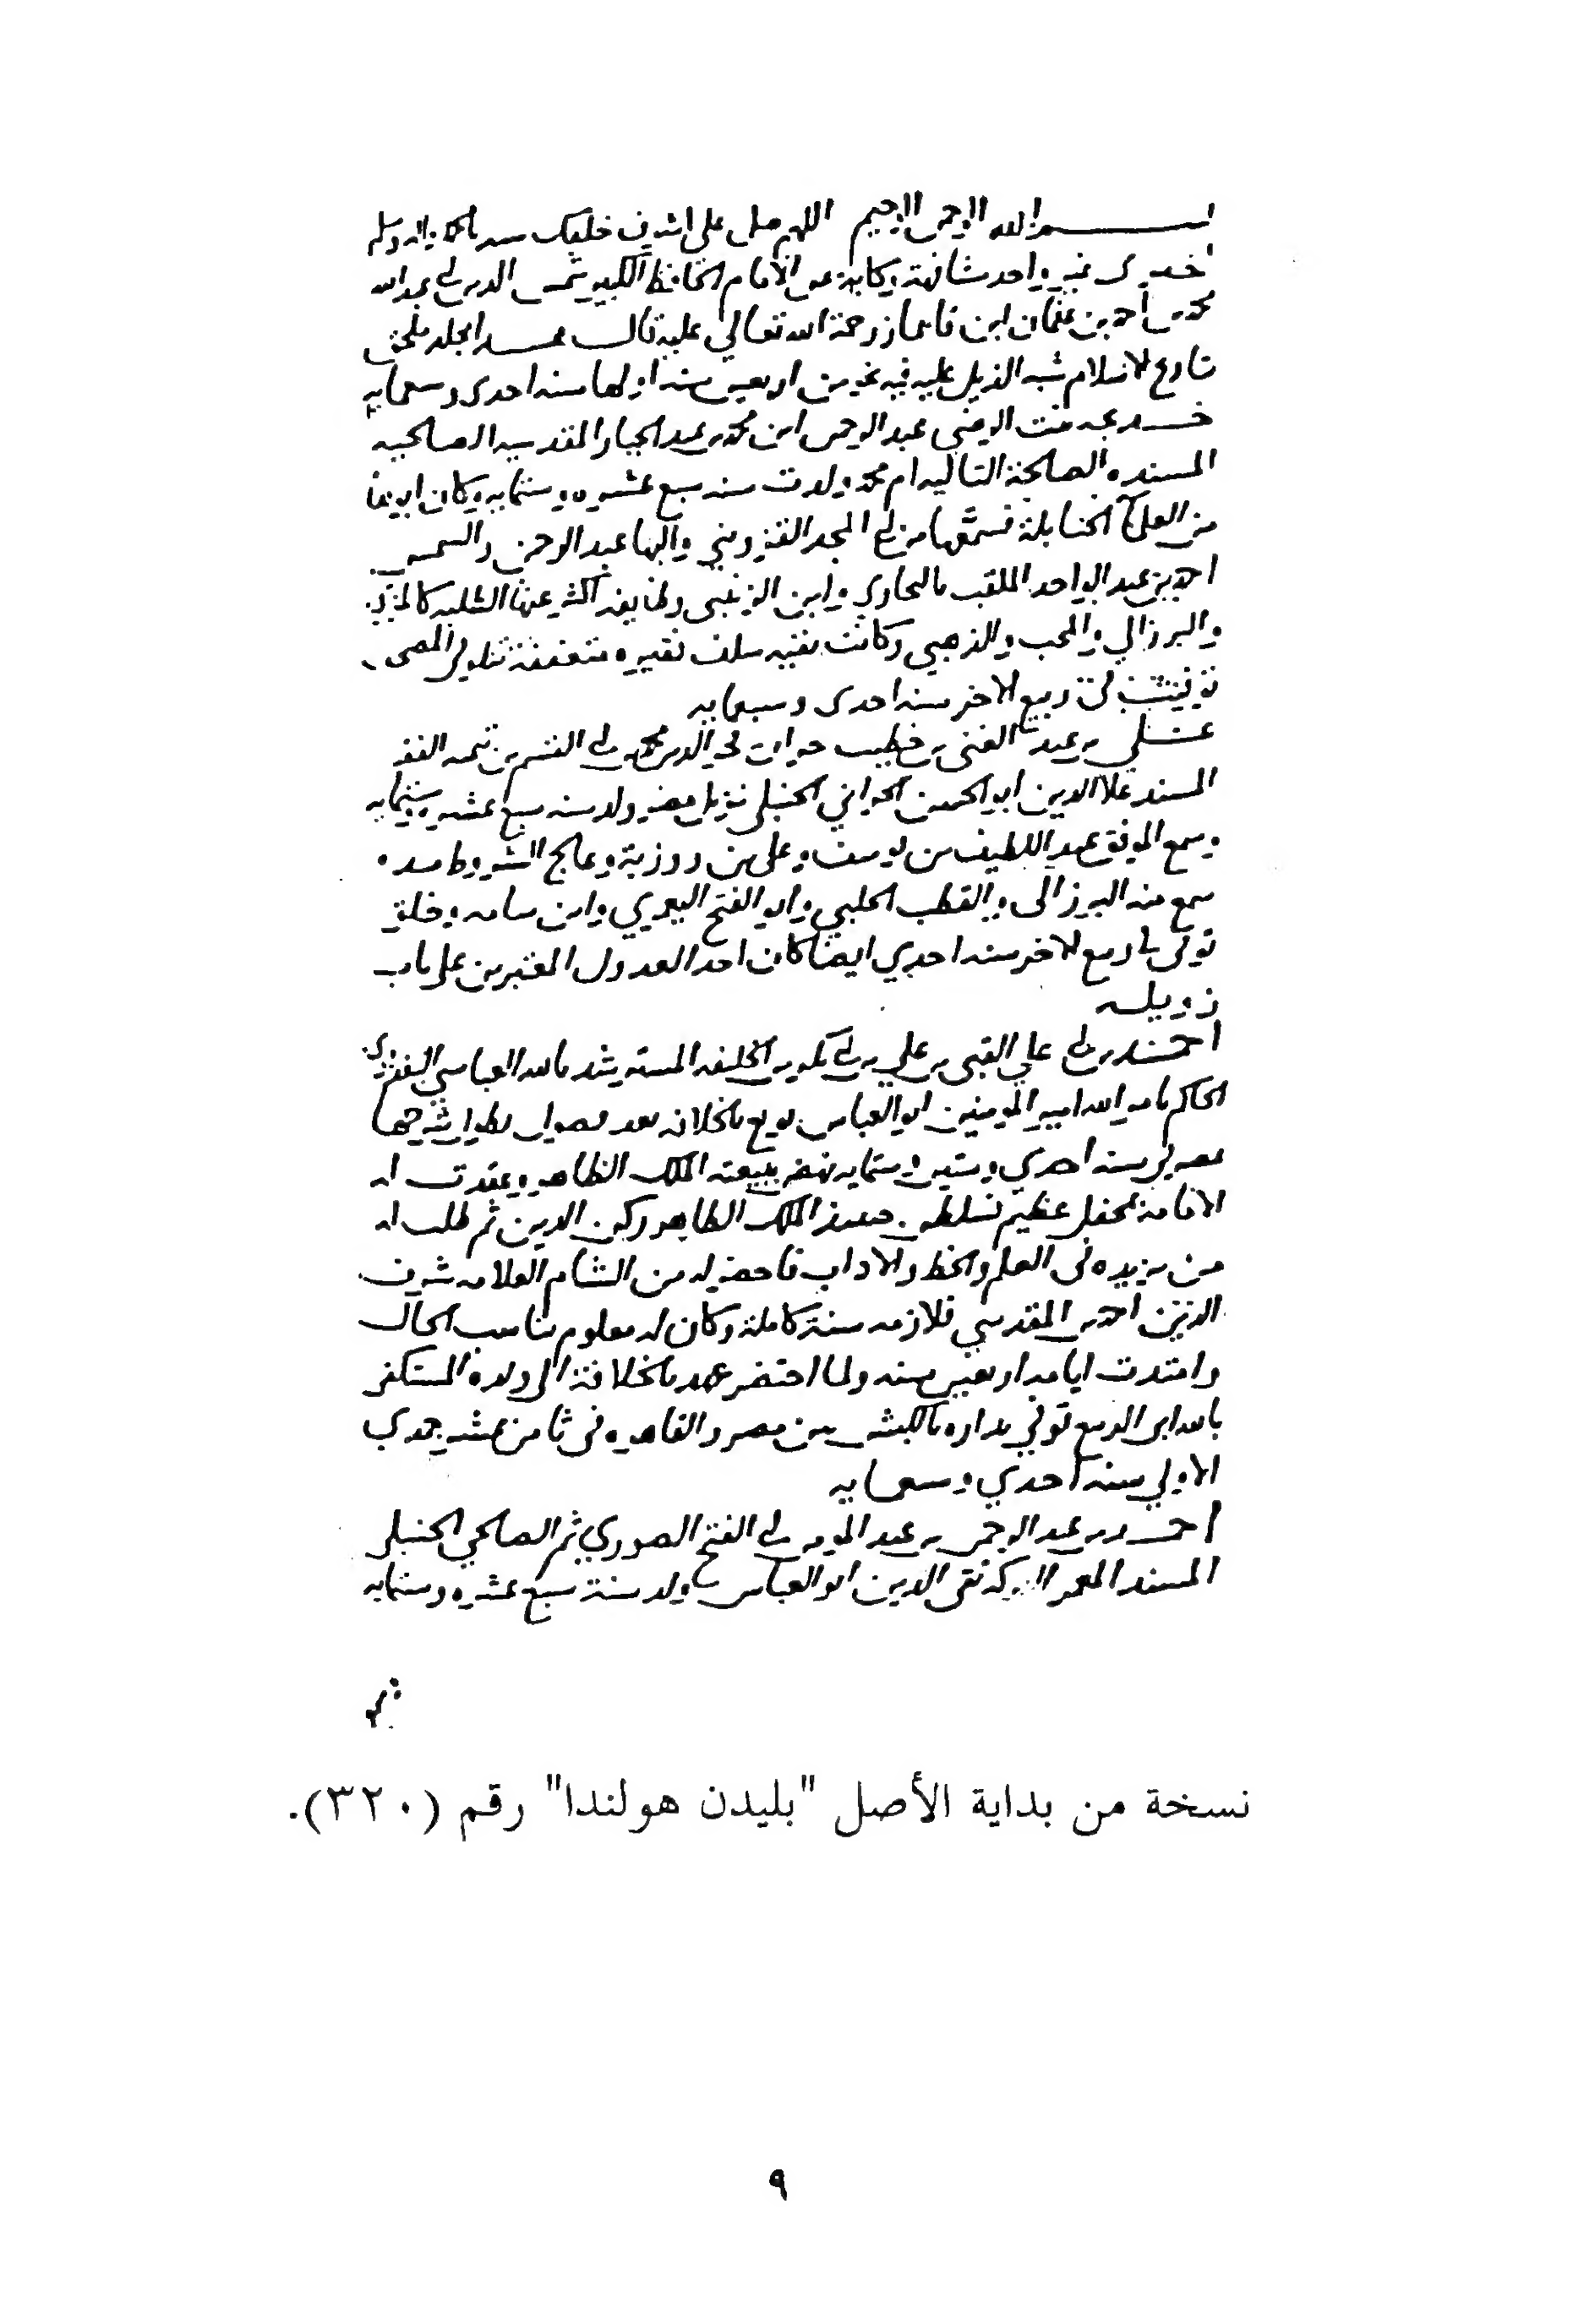 بسم الله الرحمن الرحيم اللهم صل على اشرف خلقك سيدنا محمد واله وسلم
اخبرني غير واحد مشافهة وكتابة عن الامام الحافظ الكبير شمس الدين ابي عبد الله
محمد بن احمد بن عثمان ابن قايماز رحمة الله تعالى عليه قال هذا مجلد ملحق
تاريخ الاسلام شبه الذيل عليه فيه نحو من اربعين سنه اولها سنه احدى وسبعمايه
خديجه بنت الرضي عبد الرحمن ابن محمد بن عبد الجبار المقدسيه الصالحيه
المسنده الصالحة التاليه ام محمد ولدت سنه سبع عشره وستمايه وكان ابوها
من العلمآ الحنابلة فسمَّعها من ابي المجد القزويني والبها عبد الرحمن والشمس
احمد بن عبد الواحد الملقب بالبخاري وابن الزبيدي وطايفه اكثر عنها الطلبه كالمزي
والبرزالي والمحب والذهبي وكانت بقيه سلف فقيره متعففة
توفيت في ربيع الاخر سنه احدى وسبعمايه
علي بن عبد الغنى بن خطيب حران فخر الدين محمد بن ابي القسم بن تيميه الفقيه
المسند علا الدين ابو الحسن الحراني الحنبلي نزيل مصر ولد سنه سبع عشره وستمايه
وسمع الموفق عبد اللطيف بن يوسف وعلي بن روزبة وعالج الشروط مده
سمع منه البرزالى والقطب الحلبي وابو الفتح اليعمري وابن سامه وخلق
توفى في ربيع الاخر سنه احدي ايضا كان احد العدول المعتبرين على باب
زويله
احمد بن ابي علي القبي بن علي بن ابي بكر بن الخليفه المسترشد بالله العباسي البغدادي
الحاكم بامر الله امير المومنين ابو العباس بويع بالخلافه بعد فصول يطول شرحها
بمصر في سنه احدي وستين وستمايه نهض ببيعته الملك الظاهر وعقدت له
الامامة بمحفل عظيم فسلطن حينئذ الملك الظاهر ركن الدين ثم طلب له
من يزيده في العلم والخط والاداب فاحضر له من الشام العلامه شرف
الدين احمد بن المقدسي فلازمه سنة كاملة وكان له معلوم يناسب الحال
وامتدت ايامه اربعين سنه ولما احتضر عهد بالخلافة الى ولده المستكفي
بالله ابى الربيع توفي بداره بالكبش بين مصر والقاهره في ثامن عشر جمدي
الاولي سنه احدي وسبعمايه
احمد بن عبد الرحمن بن عبد المومن بن ابي الفتح الصوري ثم الصالحي الحنبلي
المسند المعمر البركه تقى الدين ابو العباس ولد سنة سبع عشره وستمايه
نسخة من بداية الأصل "بليدن هولندا" رقم (٣٢٠).
٩